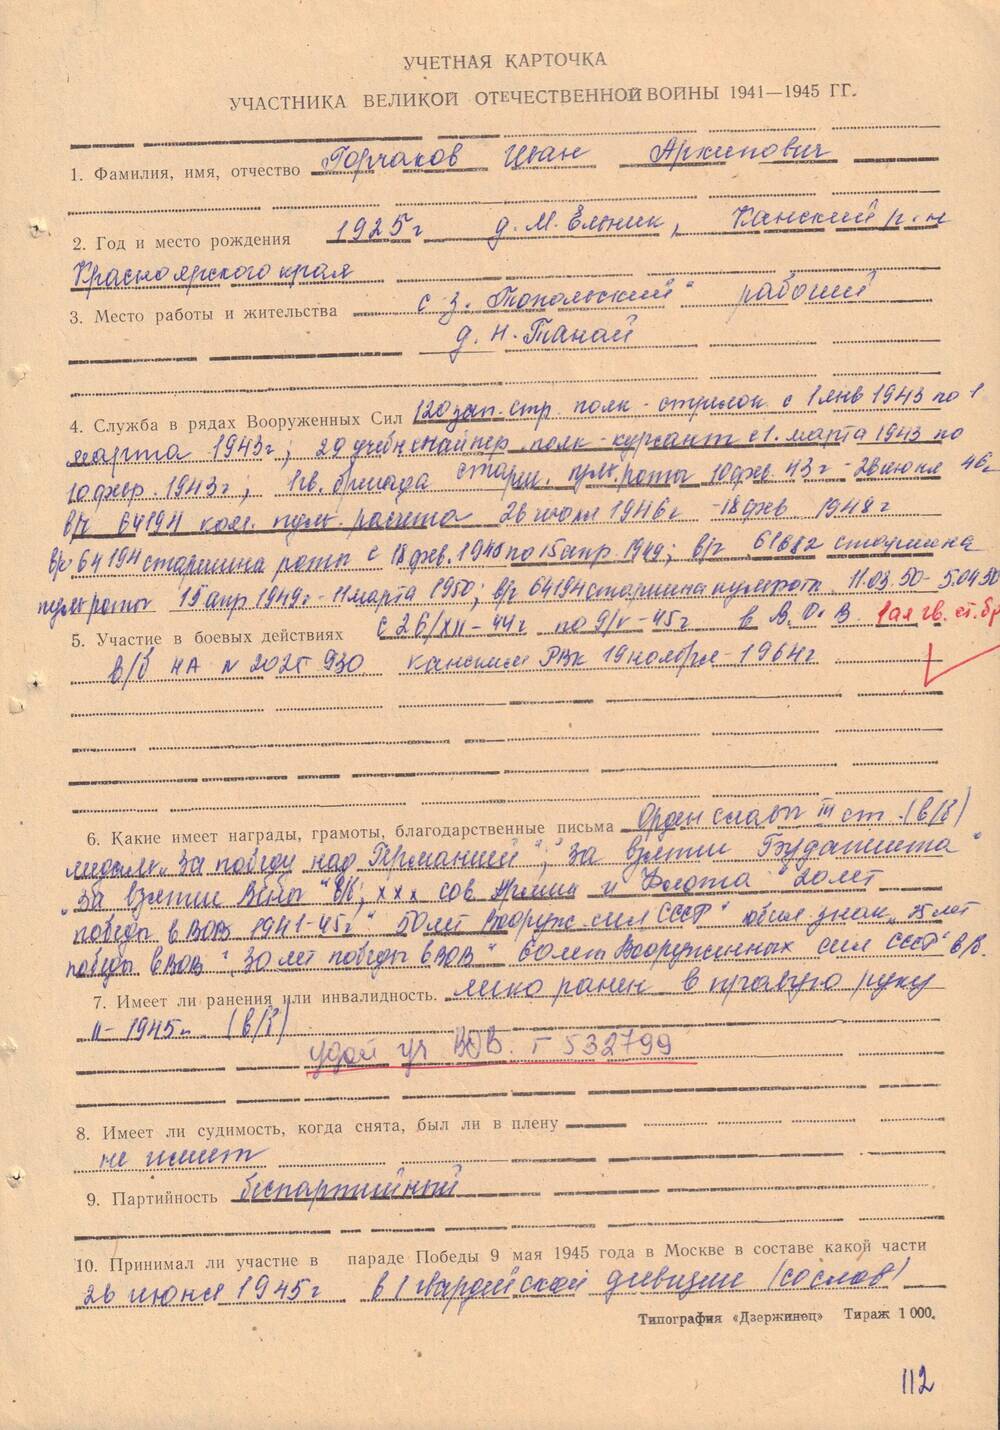 УЧЕТНАЯ КАРТОЧКА
УЧАСТНИКА ВЕЛИКОЙ ОТЕЧЕСТВЕННОЙ ВОЙНЫ 1941—1945 ГГ.
1. Фамилия, имя, отчество Горчаков Иван Архипович
2. Год и место рождения 1925г д. М. Ельник, Канский р-н
Красноярского края
3. Место работы и жительства с-з „Топольский" рабочий
д. Н-Танай
4. Служба в рядах Вооруженных Сил 120 зап. стр. полк - стрелок с 1 янв 1943 по 1
марта 1943г; 29 учебн снайпер. полк - курсант с 1. марта 1943 по
10 февр. 1943г; 1 гв. бригада старш. пульт. рота 10 фев. 43г - 26 июля 46г
в/ч 64194 ком. пульт. расчета 26 июля 1946г - 18 фев 1948г
в/ч 64194 старшина роты с 18 фев. 1948 по 15 апр. 1949; в/ч 61682 старшина
пульт роты 15 апр 1949г - 11 марта 1950; в/ч 64194 старшина пульт роты 11.03.50 - 5.04.50
5. Участие в боевых действиях с 26/XII-44г по 9/V-45г в В.О.В. 1ая гв. ст. бр
в/б НА № 2025930 канским РВК 19 ноября 1964г
6. Какие имеет награды, грамоты, благодарственные письма Орден славы III ст. (в/б)
медаль „За победу над Германией", „За взятие Будапешта"
„За взятие Вены" в/б; ххх сов. Армии и Флота" 20 лет
победы в ВОВ 1941-45г" 50 лет Вооруж. сил СССР" юбил. знак „25 лет
победы в ВОВ", 30 лет победы в ВОВ" 60 лет Вооруженных сил СССР" в/б.
7. Имеет ли ранения или инвалидность. легко ранен в правую руку
II-1945г. (в/б)
удост уч ВОВ. Г 532799
8. Имеет ли судимость, когда снята, был ли в плену
не имеет
9. Партийность беспартийный
10. Принимал ли участие в параде Победы 9 мая 1945 года в Москве в составе какой части
26 июня 1945г в 1 гвардейской дивизии (со слов)
Типография «Дзержинец» Тираж 1 000.
112